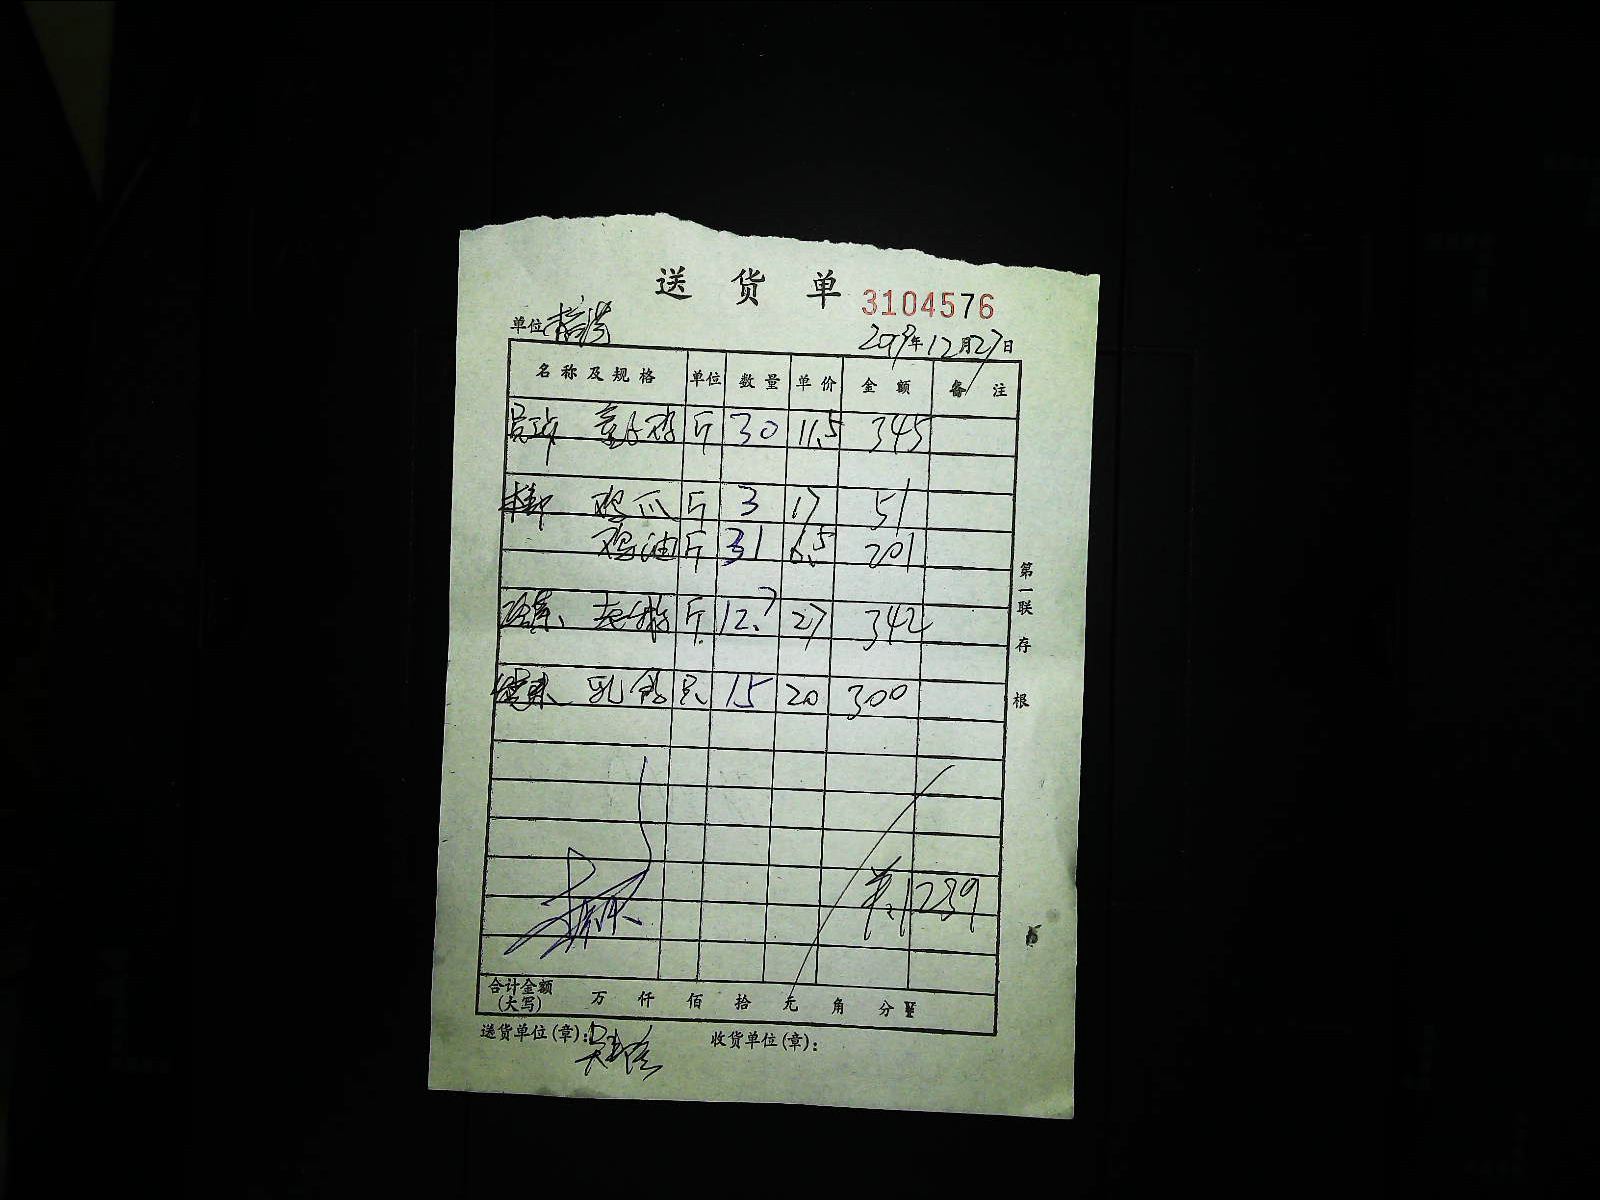 送货单
3104576
单位
2019年12月27日
名称及规格 单位 数量 单价 金额 备注
童子鸡 斤 30 11.5 345
鸡爪 斤 3 17 51
鸡油 斤 31 6.5 201
斤 12.7 27 342
乳鸽 只 15 20 300
共:1239
合计金额(大写) 万 仟 佰 拾 元 角 分
送货单位(章):
收货单位(章):
第一联 存根